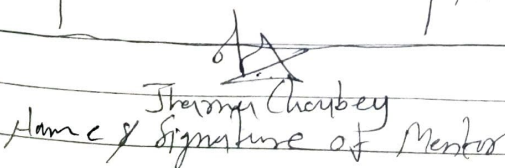 Choubey
Name & Signature of Mentor